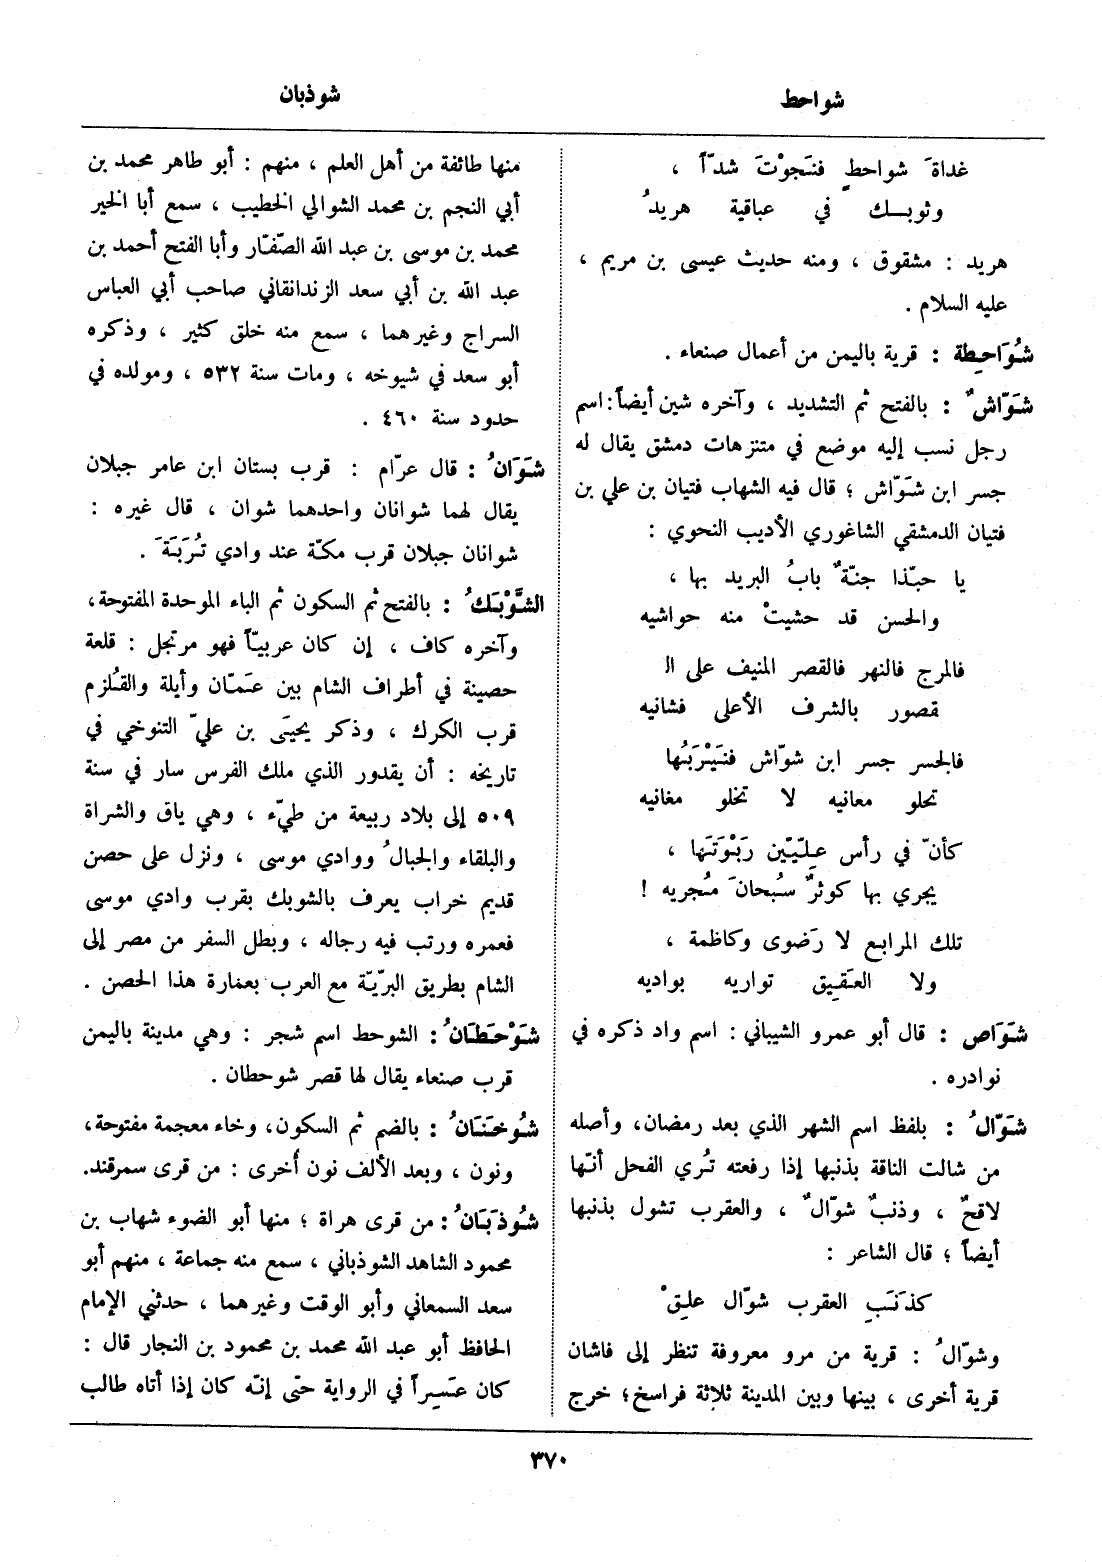 شواحط
شوذبان
غداةَ شواحطٍ فنَجوْتَ شدّاً ،
وثوبك في عباقية هريدُ
هريد : مشقوق ، ومنه حديث عيسى بن مريم ،
عليه السلام .
شُوَاحِطة : قرية باليمن من أعمال صنعاء .
شَوّاشٌ : بالفتح ثم التشديد ، وآخره شين أيضاً : اسم
رجل نسب إليه موضع في متنزهات دمشق يقال له
جسر ابن شَوّاش ؛ قال فيه الشهاب فتيان بن علي بن
فتيان الدمشقي الشاغوري الأديب النحوي :
يا حبّذا جنّةٌ بابُ البريد بها ،
والحسن قد حشيتْ منه حواشيه
فالمرج فالنهر فالقصر المنيف على ال
قصور بالشرف الأعلى فشانيه
فالجسر جسر ابن شوّاش فنَيْرَبُها
تحلو معانيه لا تخلو مغانيه
كأنّ في رأس عِلِيّين رَبْوَتَها ،
يجري بها كوثرٌ سُبحانَ مُجريه !
تلك المرابع لا رَضوى وكاظمة ،
ولا العَقيق تواريه بواديه
شَوَاص : قال أبو عمرو الشيباني : اسم واد ذكره في
نوادره .
شَوّالُ : بلفظ اسم الشهر الذي بعد رمضان ، وأصله
من شالت الناقة بذنبها إذا رفعته تُري الفحل أنّها
لاقحٌ ، وذنبٌ شوّالٌ ، والعقرب تشول بذنبها
أيضاً ؛ قال الشاعر :
كذَنَبِ العقرب شوّال علِقْ
وشوّالُ : قرية من مرو معروفة تنظر إلى فاشان
قرية أخرى ، بينها وبين المدينة ثلاثة فراسخ ؛ خرج
منها طائفة من أهل العلم ، منهم : أبو طاهر محمد بن
أبي النجم بن محمد الشوالي الخطيب ، سمع أبا الخير
محمد بن موسى بن عبد الله الصّفّار وأبا الفتح أحمد بن
عبد الله بن أبي سعد الزندانقاني صاحب أبي العباس
السراج وغيرهما ، سمع منه خلق كثير ، وذكره
أبو سعد في شيوخه ، ومات سنة ٥٣٢ ، ومولده في
حدود سنة ٤٦٠ .
شَوَانُ : قال عرّام : قرب بستان ابن عامر جبلان
يقال لهما شوانان واحدهما شوان ، قال غيره :
شوانان جبلان قرب مكّة عند وادي تُرَبَةَ .
الشَّوْبَكُ : بالفتح ثم السكون ثم الباء الموحدة المفتوحة ،
وآخره كاف ، إن كان عربيّاً فهو مرتجل : قلعة
حصينة في أطراف الشام بين عَمّان وأيلة والقُلزم
قرب الكرك ، وذكر يحيَى بن عليّ التنوخي في
تاريخه : أن يقدور الذي ملك الفرس سار في سنة
٥٠٩ إلى بلاد ربيعة من طيّء ، وهي ياق والشراة
والبلقاء والجبالُ ووادي موسى ، ونزل على حصن
قديم خراب يعرف بالشوبك بقرب وادي موسى
فعمره ورتب فيه رجاله ، وبطل السفر من مصر إلى
الشام بطريق البرّيّة مع العرب بعمارة هذا الحصن .
شَوْحَطَانُ : الشوحط اسم شجر : وهي مدينة باليمن
قرب صنعاء يقال لها قصر شوحطان .
شُوخَنَانُ : بالضم ثم السكون ، وخاء معجمة مفتوحة ،
ونون ، وبعد الألف نون أخرى : من قرى سمرقند .
شُوذَبَانُ : من قرى هراة ؛ منها أبو الضوء شهاب بن
محمود الشاهد الشوذباني ، سمع منه جماعة ، منهم أبو
سعد السمعاني وأبو الوقت وغيرهما ، حدثني الإمام
الحافظ أبو عبد الله محمد بن محمود بن النجار قال :
كان عَسِراً في الرواية حتى إنّه كان إذا أتاه طالب
٣٧٠